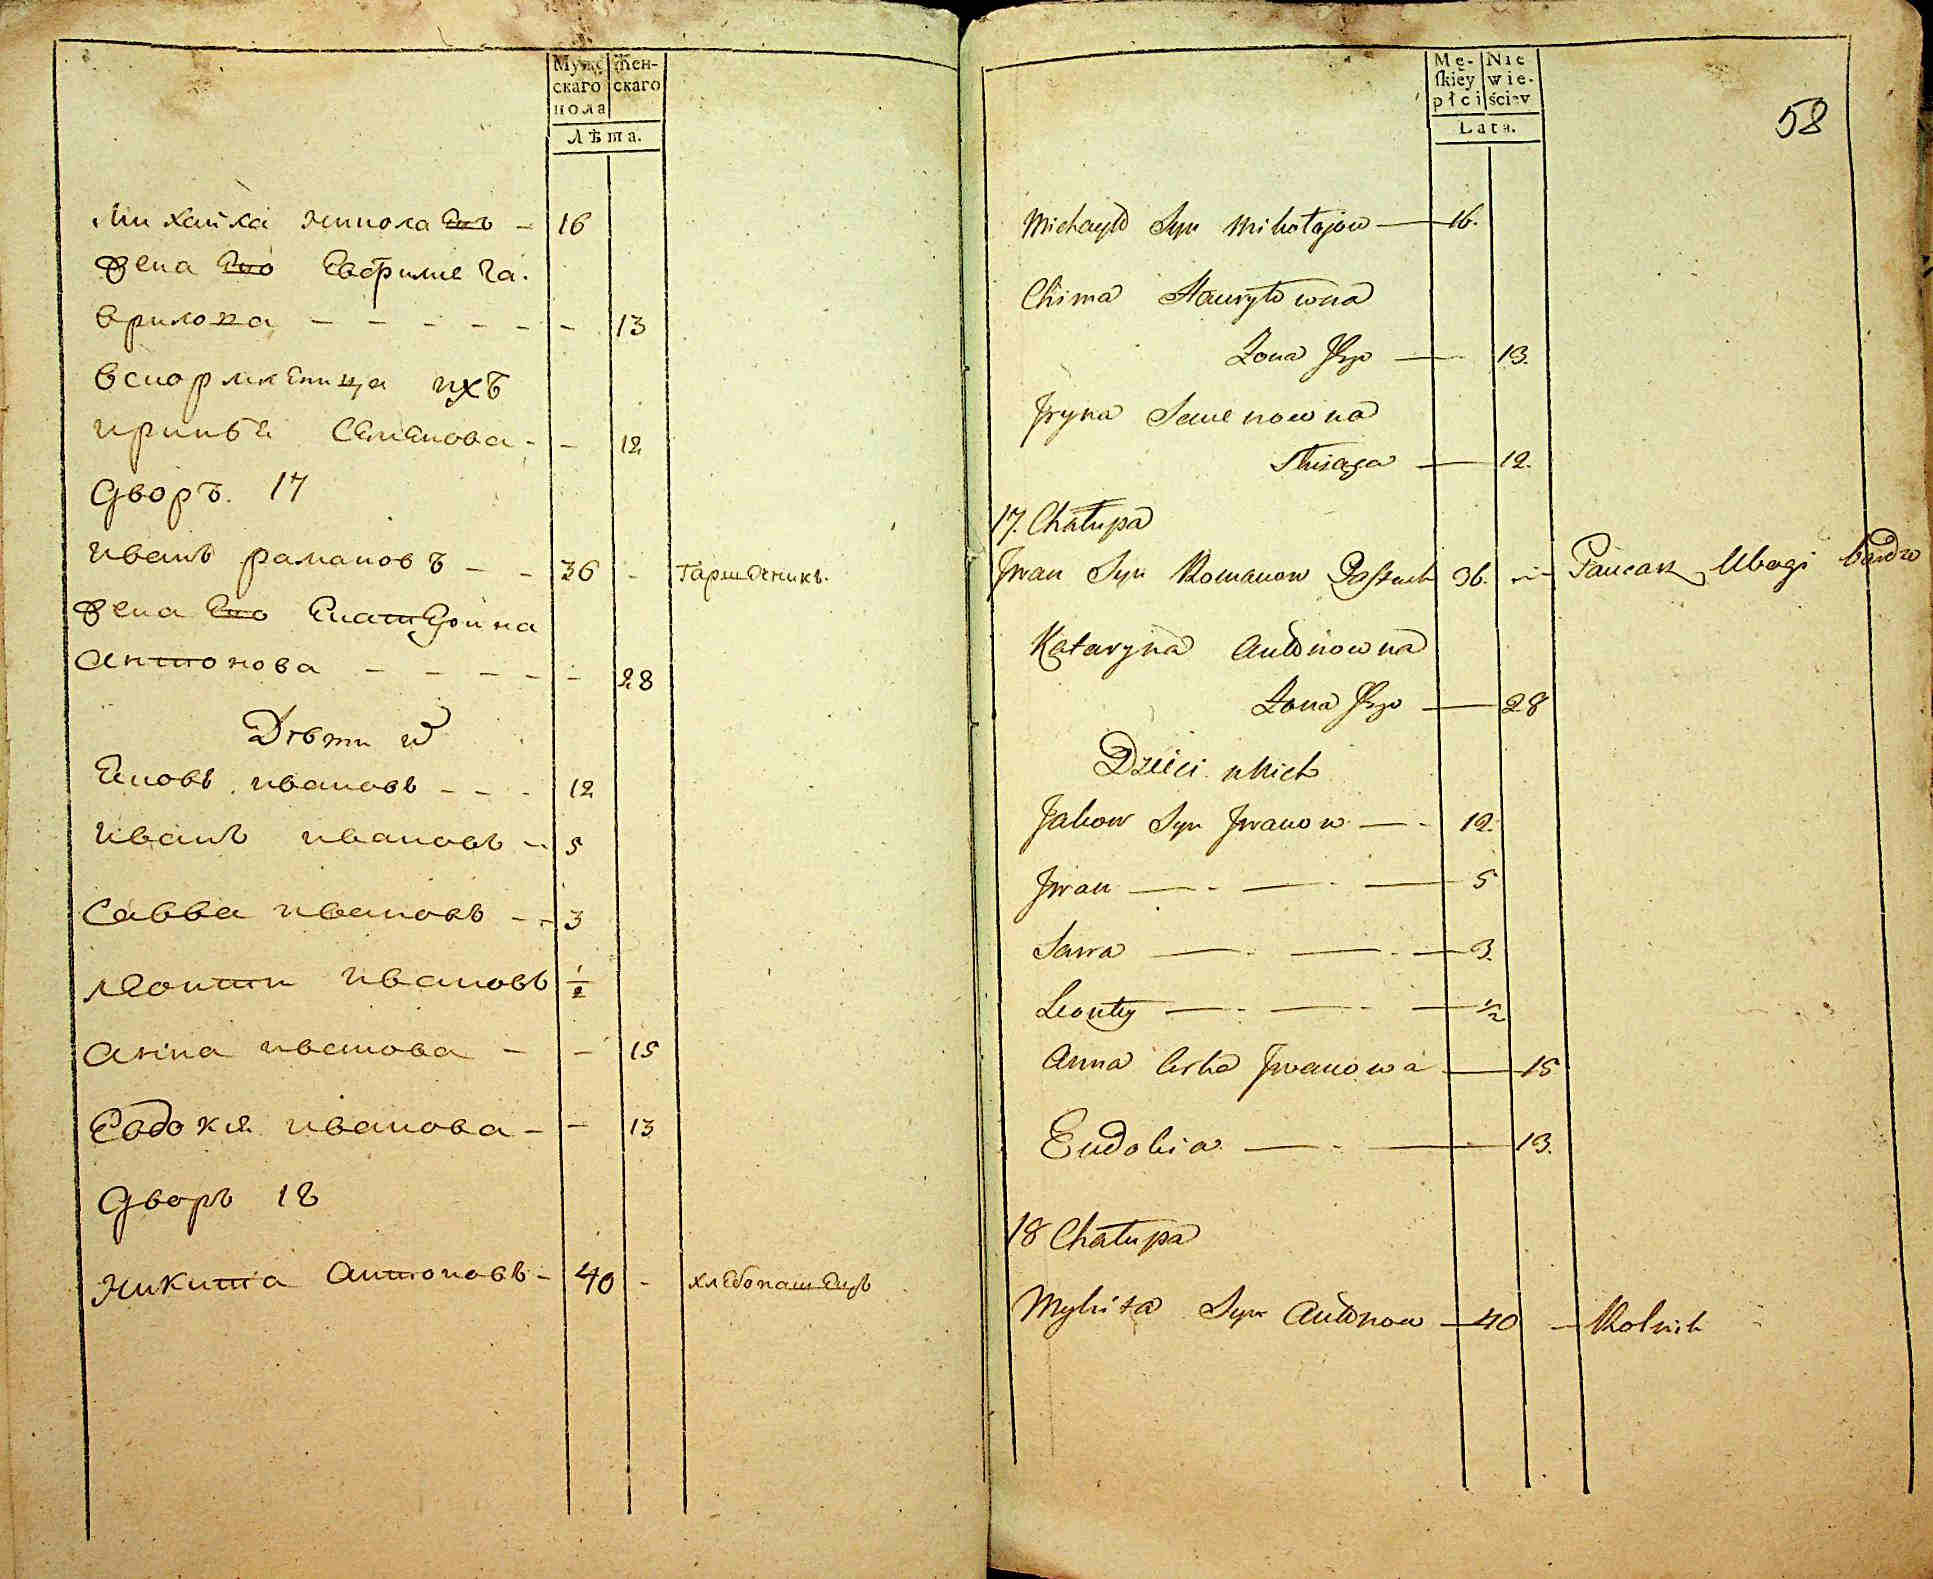 Муже
скаго
пола
Жен-
скаго
Лѣта.
Михайла николаевъ - 16
жена Его Евфимие га.
врилова - - - - - - 13
вскормленница ихъ
иринѣя Семенова - - 12
Дворъ. 17
иванъ романовъ - - 36 -
жена Его Екатерина
антонова - - - - - 28
Дѣти и
Яковъ ивановъ - - - 12
иванъ ивановъ - 5
Савва ивановъ - - 3
леонти ивановъ 1/2
анна иванова - - 15
Евдокия иванова - - 13
Дворъ 18
никита антоновъ - 40 - хлебопашецъ
Mę-
skiey
płci
Nie
wie-
ściey
Lata.
58
Michayło Syn Mikołajow — 16.
Chima Hawryłowna
Żona Jego — 13.
Jryna Semenowna
Sługa — 12.
17. Chałupa
Jwan Syn Romanow Pastuch 36. — Ubogi bardzo
Kataryna Antonowna
Żona Jego — 28
Dzieci nkich
Jakow Syn Jwanow — - 12.
Jwan — - — - — 5
Sawa — - — - — 3.
Leonty — - — - — 1/2
Anna Corka Jwanowa — 15
Eudokia — - — 13.
18 Chałupa
Mykita Syn Antonow — 40 — Rolnik